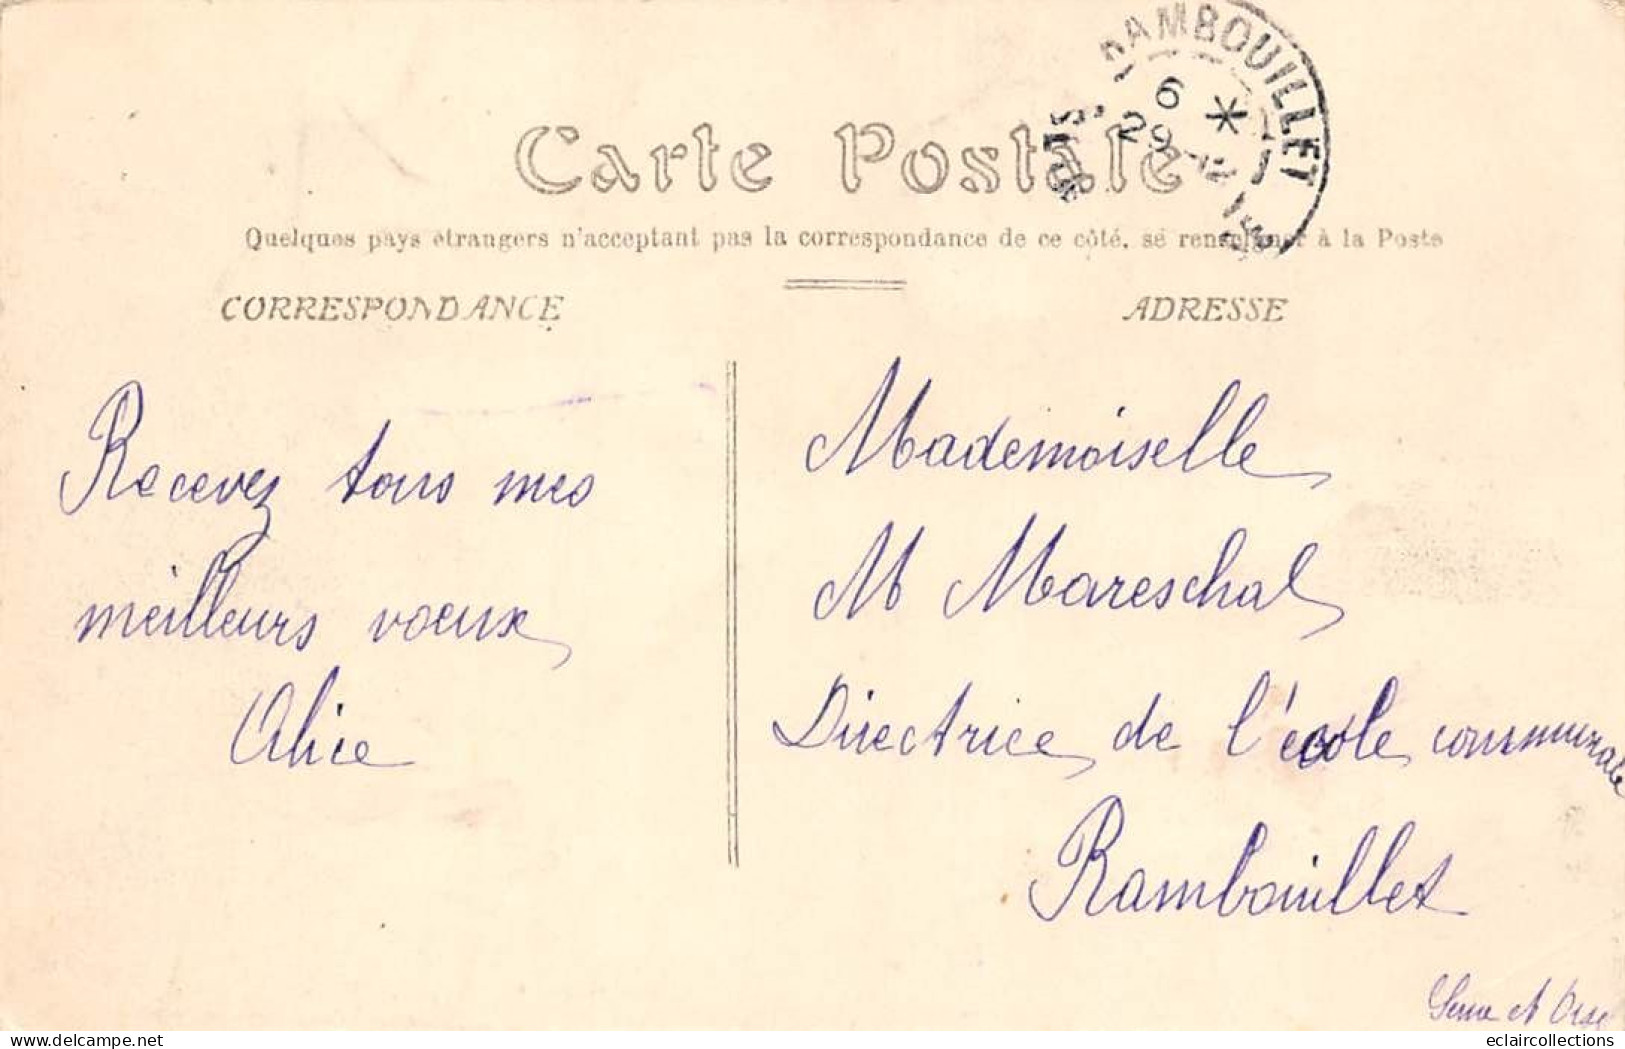 RAMBOUILLET
6 *
29 -12
Carte Postale
Quelques pays étrangers n'acceptant pas la correspondance de ce côté, se renseigner à la Poste
CORRESPONDANCE
ADRESSE
Recevez tous mes
meilleurs voeux
Alice
Mademoiselle
M Mareschal
Directrice de l'école communale
Rambouillet
Seine et Oise
eclaircollections